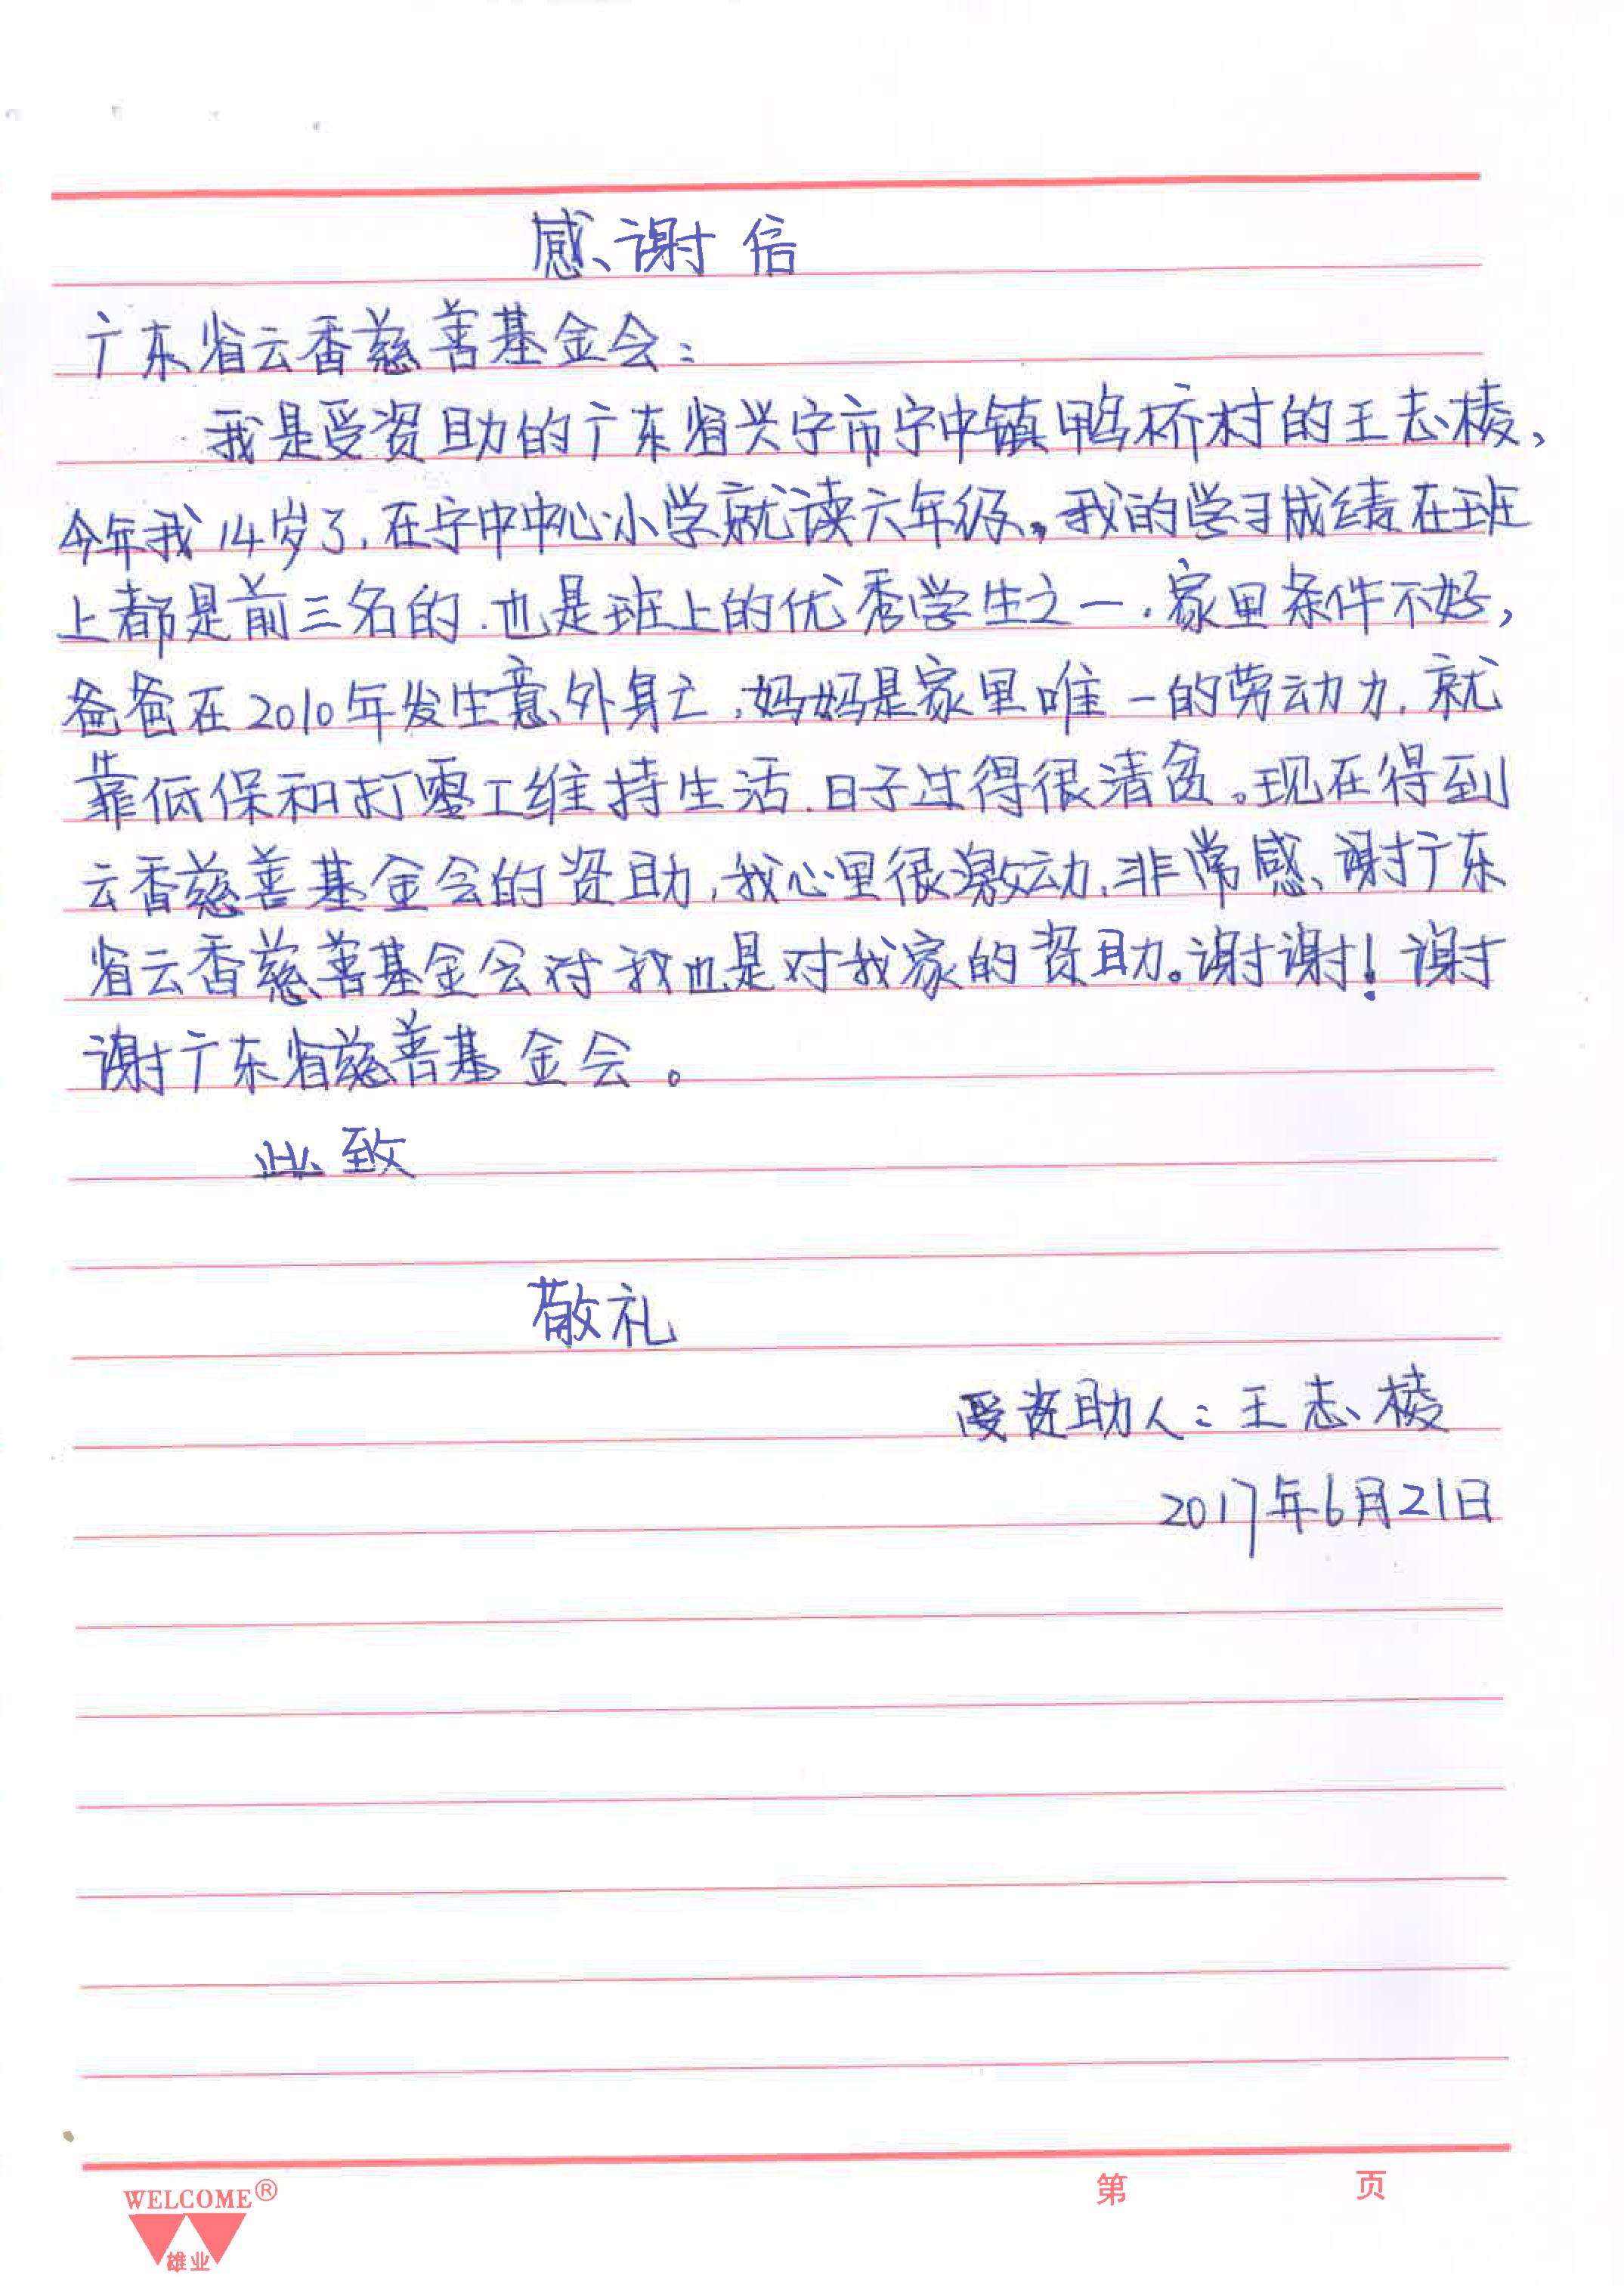 感谢信
广东省云香慈善基金会：
我是受资助的广东省兴宁市宁中镇鸭桥村的王志棱，
今年我14岁了，在宁中中心小学就读六年级。我的学习成绩在班
上都是前三名的，也是班上的优秀学生之一．家里条件不好，
爸爸在2010年发生意外身亡，妈妈是家里唯一的劳动力，就
靠低保和打零工维持生活．日子过得很清贫。现在得到
云香慈善基金会的资助，我心里很激动，非常感谢广东
省云香慈善基金会对我也是对我家的资助。谢谢！谢
谢广东省慈善基金会。
此致
敬礼
受资助人：王志棱
2017年6月21日
WELCOME®
雄业
第 页